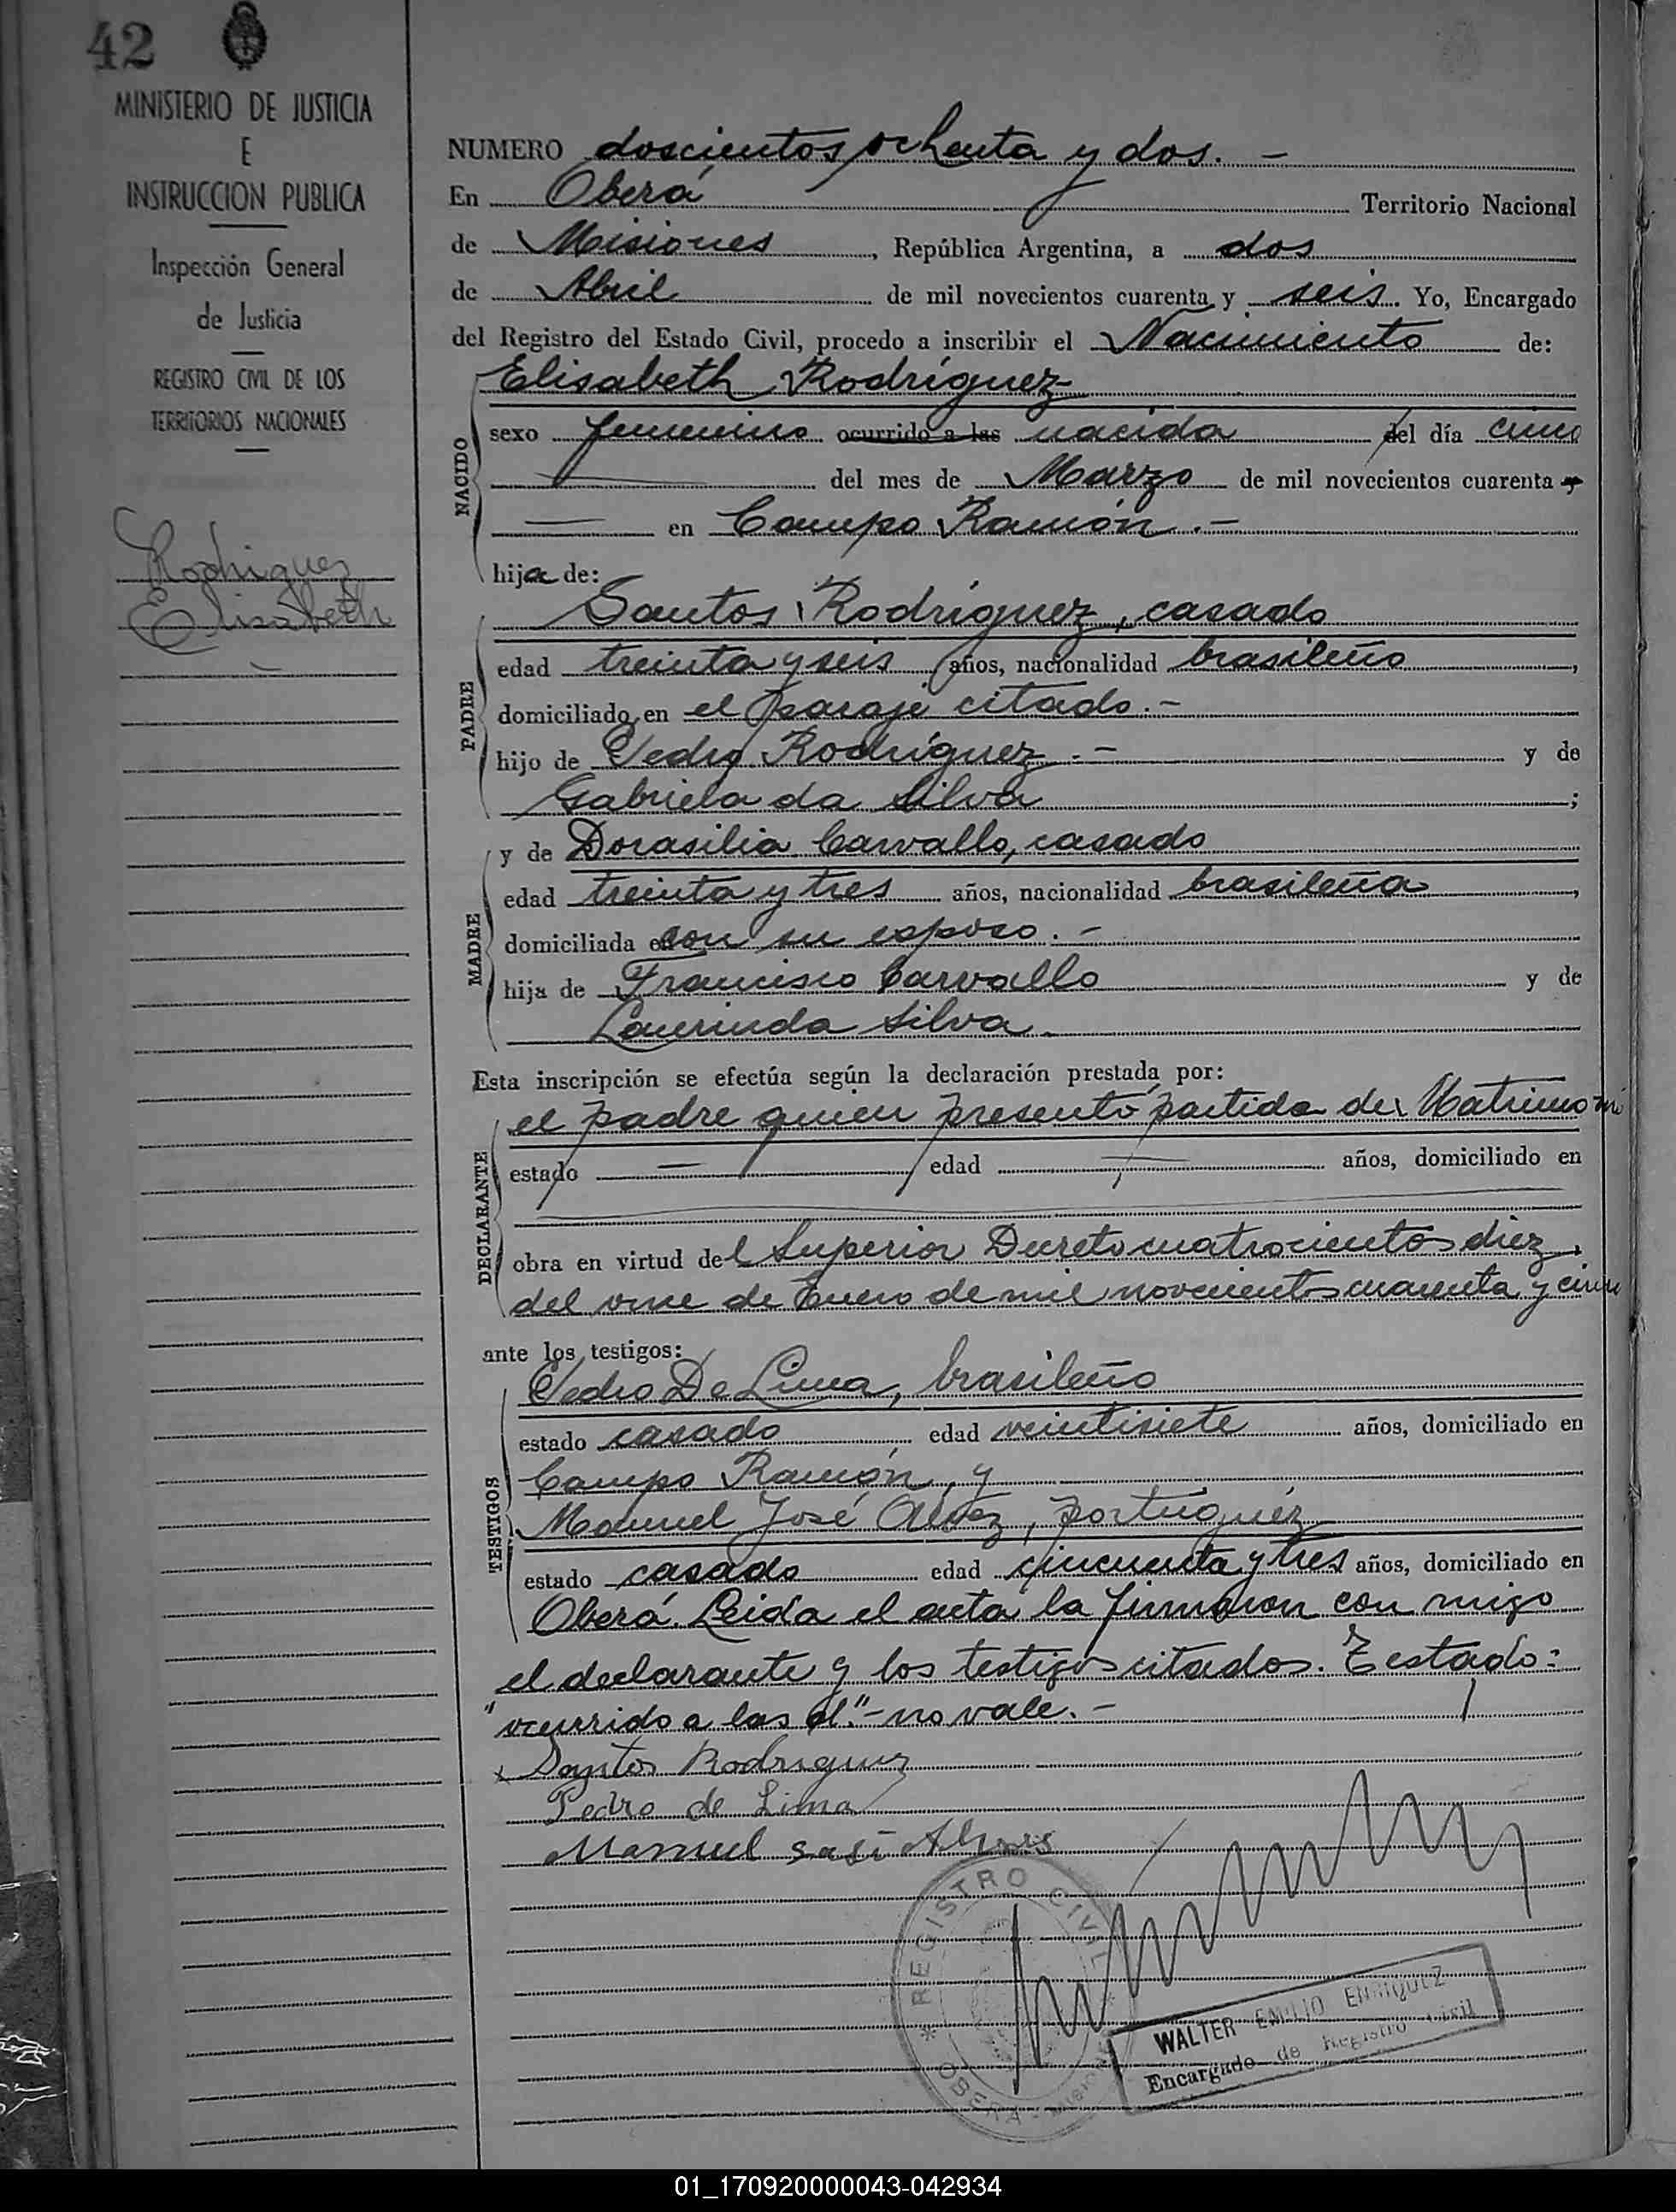 42
MINISTERIO DE JUSTICIA
E
INSTRUCCION PUBLICA
Inspección General
de Justicia
REGISTRO CIVIL DE LOS
TERRITORIOS NACIONALES
Rodriguez
Elisabeth
NUMERO doscientos ochenta y dos. —
En Oberá Territorio Nacional
de Misiones, República Argentina, a dos
de Abril de mil novecientos cuarenta y seis. Yo, Encargado
del Registro del Estado Civil, procedo a inscribir el Nacimiento de:
Elisabeth Rodríguez
NACIDO
sexo femenino ocurrido a las nacida del día cinco
del mes de Marzo de mil novecientos cuarenta y
— en Campo Ramón. —
hija de:
Santos Rodríguez, casado
PADRE
edad treinta y seis años, nacionalidad brasileño,
domiciliado en el paraje citado. —
hijo de Pedro Rodríguez. — y de
Gabriela da Silva;
y de Dorasilia Carvallo, casado
MADRE
edad treinta y tres años, nacionalidad brasileña,
domiciliada en con su esposo. —
hija de Francisco Carvallo y de
Laurinda Silva.
Esta inscripción se efectúa según la declaración prestada por:
el padre quien presentó partida de Matrimoni
DECLARANTE
estado — edad — años, domiciliado en
obra en virtud del Superior Decreto cuatrocientos diez
del once de Enero de mil novecientos cuarenta y cinco
ante los testigos:
Pedro De Lima, brasileño
TESTIGOS
estado casado edad veintisiete años, domiciliado en
Campo Ramón, y
Manuel José Alvez, portuguéz
estado casado edad cincuenta y tres años, domiciliado en
Oberá. Leida el acta la firmaron con migo
el declarante y los testigos citados. Testado:
"ocurrido a las d". — no vale. —
Santos Rodriguez
Pedro de Lima
Manuel
REGISTRO CIVIL
OBERA
WALTER EMILIO ENRIQUEZ
Encargado de Registro Civil
01_170920000043-042934